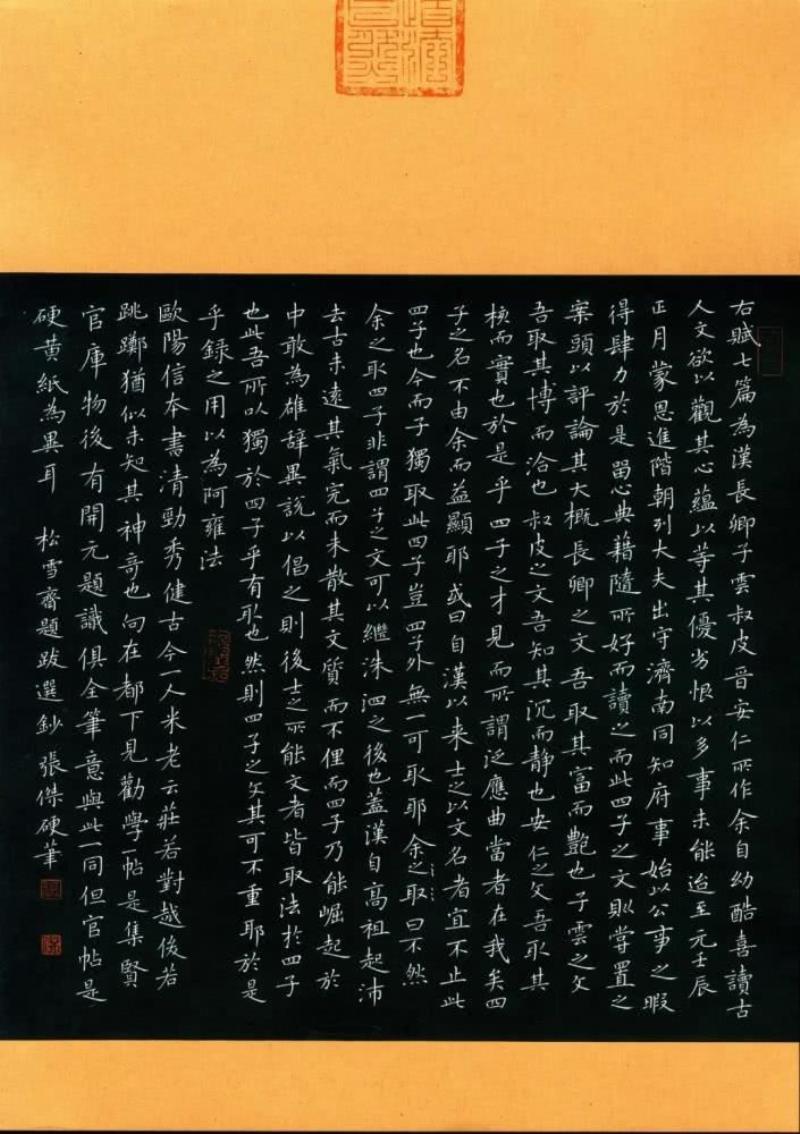 右賦七篇為漢長卿子雲叔皮晉安仁所作余自幼酷喜讀古
人文欲以觀其心蘊以等其優劣恨以多事未能迨至元壬辰
正月蒙恩進階朝列大夫出守濟南同知府事始以公事之暇
得肆力於是留心典藉隨所好而讀之而此四子之文則嘗置之
案頭以評論其大概長卿之文吾取其富而艷也子雲之文
吾取其博而洽也叔皮之文吾知其沉而靜也安仁之文吾取其
核而實也於是乎四子之才見而所謂泛應曲當者在我矣四
子之名不由余而益顯耶或曰自漢以来士之以文名者宜不止此
四子也今而子獨取此四子豈四子外無一可取耶余之取曰不然
余之取四子非謂四子之文可以繼洙泗之後也蓋漢自高祖起沛
去古未遠其氣完而未散其文質而不俚而四子乃能崛起於
中敢為雄辞異說以倡之則後士之所能文者皆取法於四子
也此吾所以獨於四子乎有取也然則四子之文其可不重耶於是
乎録之用以為阿雍法
歐陽信本書清勁秀健古今一人米老云莊若對越後若
跳躑猶似未知其神奇也向在都下見勸學一帖是集賢
官庫物後有開元題識俱全筆意與此一同但官帖是
硬黃紙為異耳 松雪齋題跋選鈔 張傑硬筆